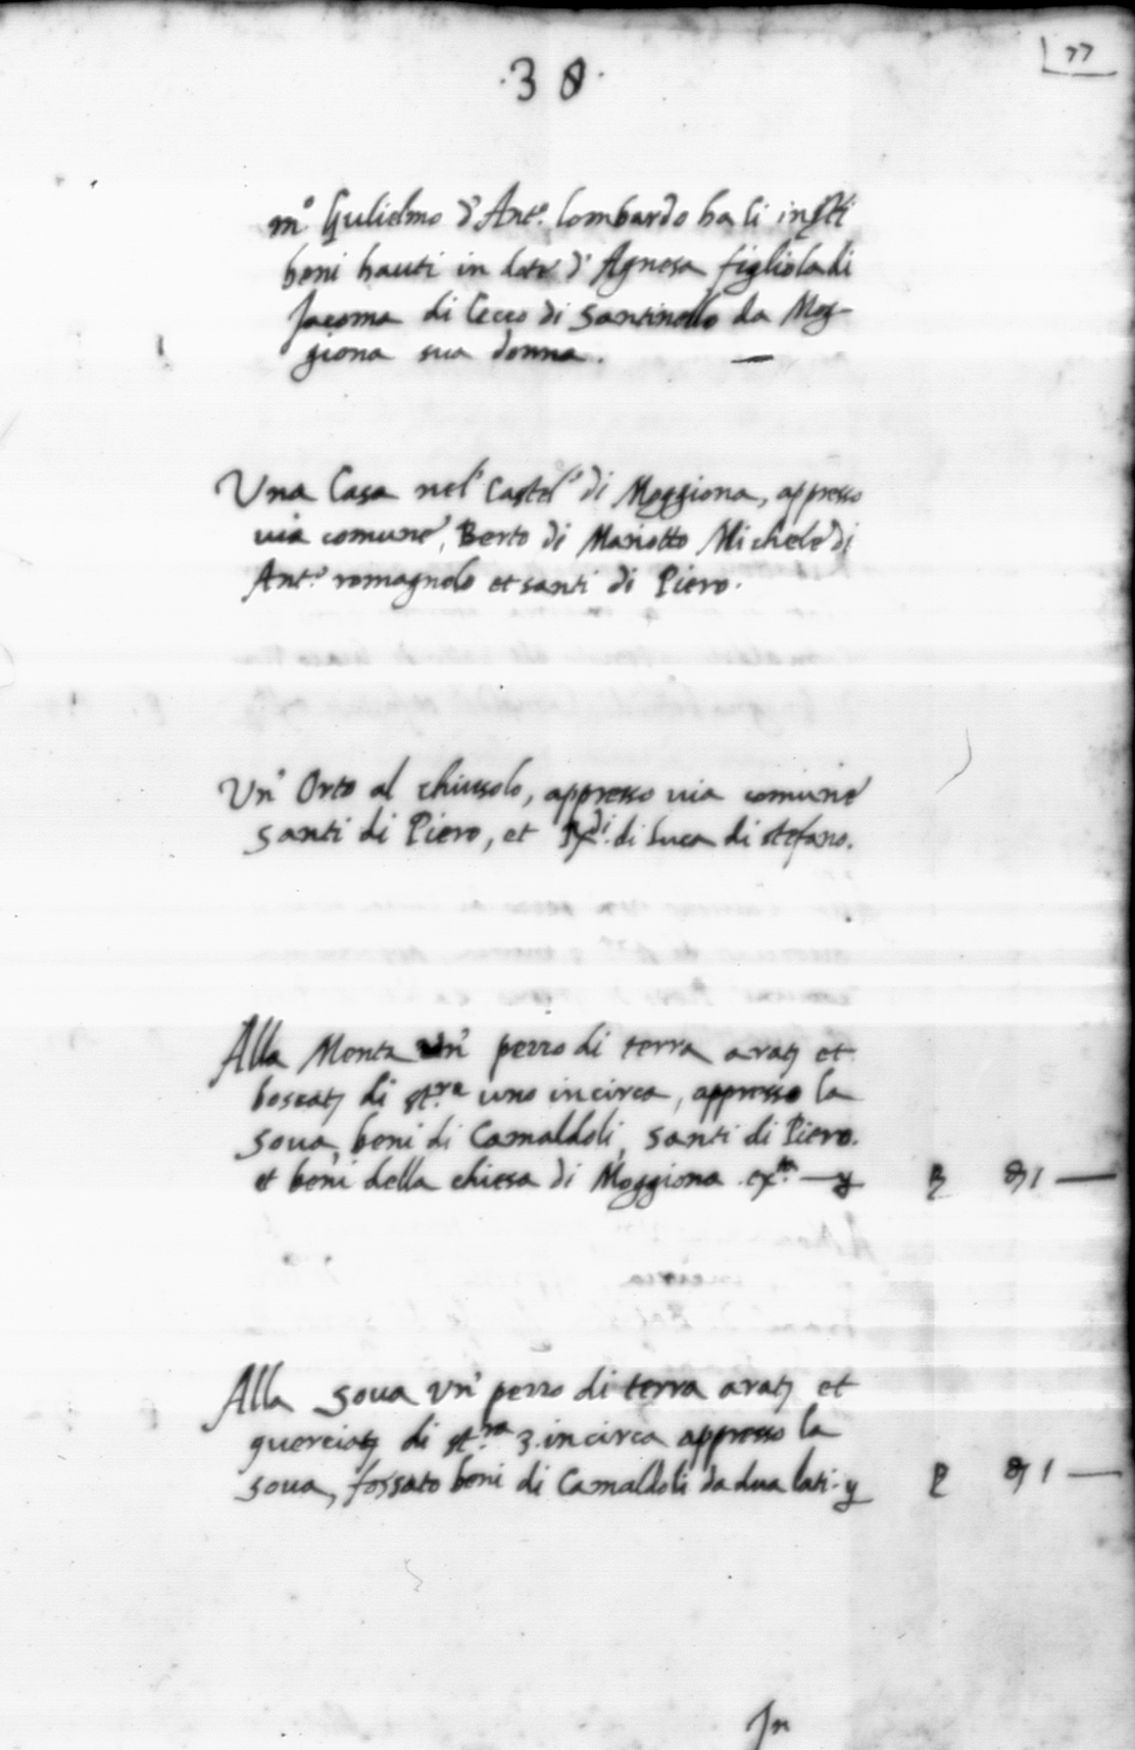 77
·38·
m.º Gulielmo d'Ant.º lombardo ha li infr.ti
beni hauti in dote d'Agnesa figliola di
Jacoma di Cecco di Santinello da Mog-
giona sua donna. —
Una Casa nel' Castel' di Moggiona, appresso
via comune, Berto di Mariotto Michele di
Ant.º romagnolo et santi di Piero.
Un' Orto al chiusolo, appresso via comune
santi di Piero, et di luca di stefano.
Alla Monta un' pezzo di terra arat. et
boscat. di st.ra uno incirca, appresso la
soua, beni di Camaldoli, santi di Piero.
et beni della chiesa di Moggiona
Alla soua un' pezzo di terra arat. et
querciat. di st.ra 3. incirca appresso la
soua, fossato beni di Camaldoli da dua lati
In